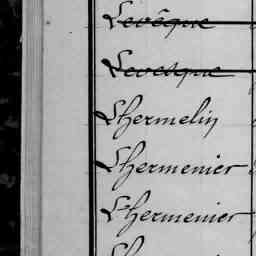 Levêque
Levesque
Lhermelin
Lhermenier
Lhermenier